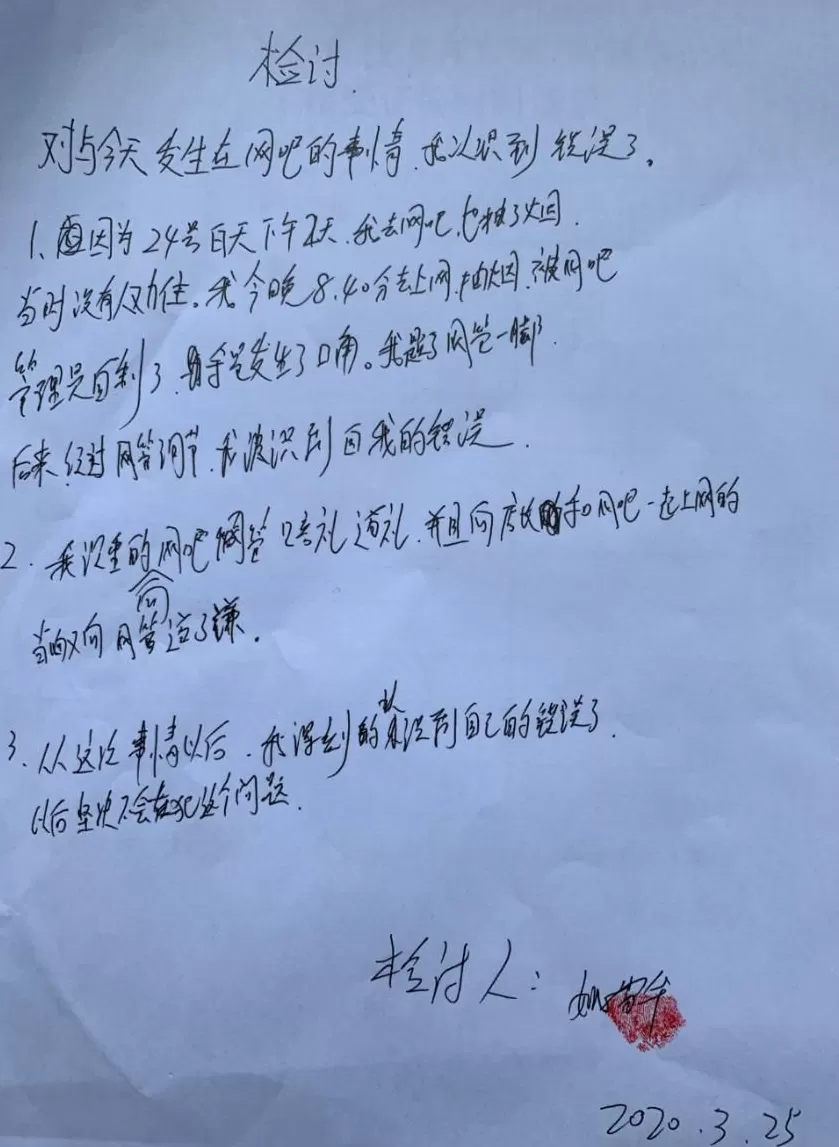 检讨.
对与今天发生在网吧的事情.我认识到错误了。
1、因为24号白天下午2天.我去网吧.也抽了烟.
当时没有人力住。我今晚8.40分去上网.抽烟.被网吧
管理员自制了.发生了口角。我踢了网管一脚.
后来.经过网管调节.我深识到自我的错误.
2.我沉重的向网吧网管赔礼道礼.并且向和网吧一起上网的
当面又向网管道了歉。
3.从这次事情以后.我深刻的认识到自己的错误了.
以后坚决不会在犯这个问题.
检讨人:
2020.3.25